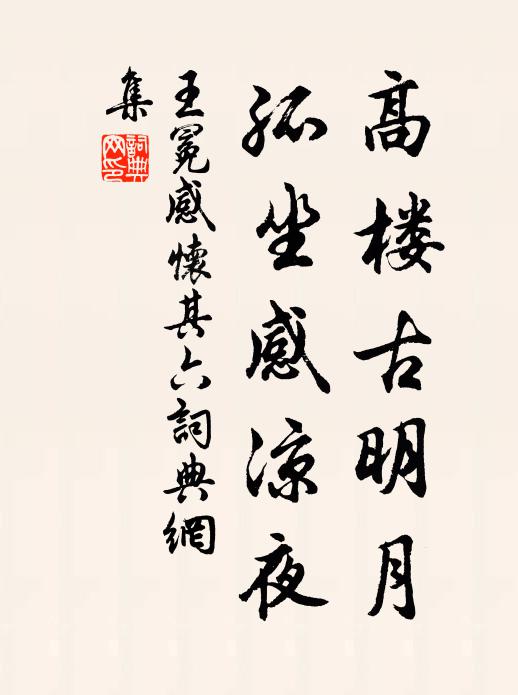 高楼古明月
孤坐感凉夜
王冕感懷其六詞典網
集
詞典
网印